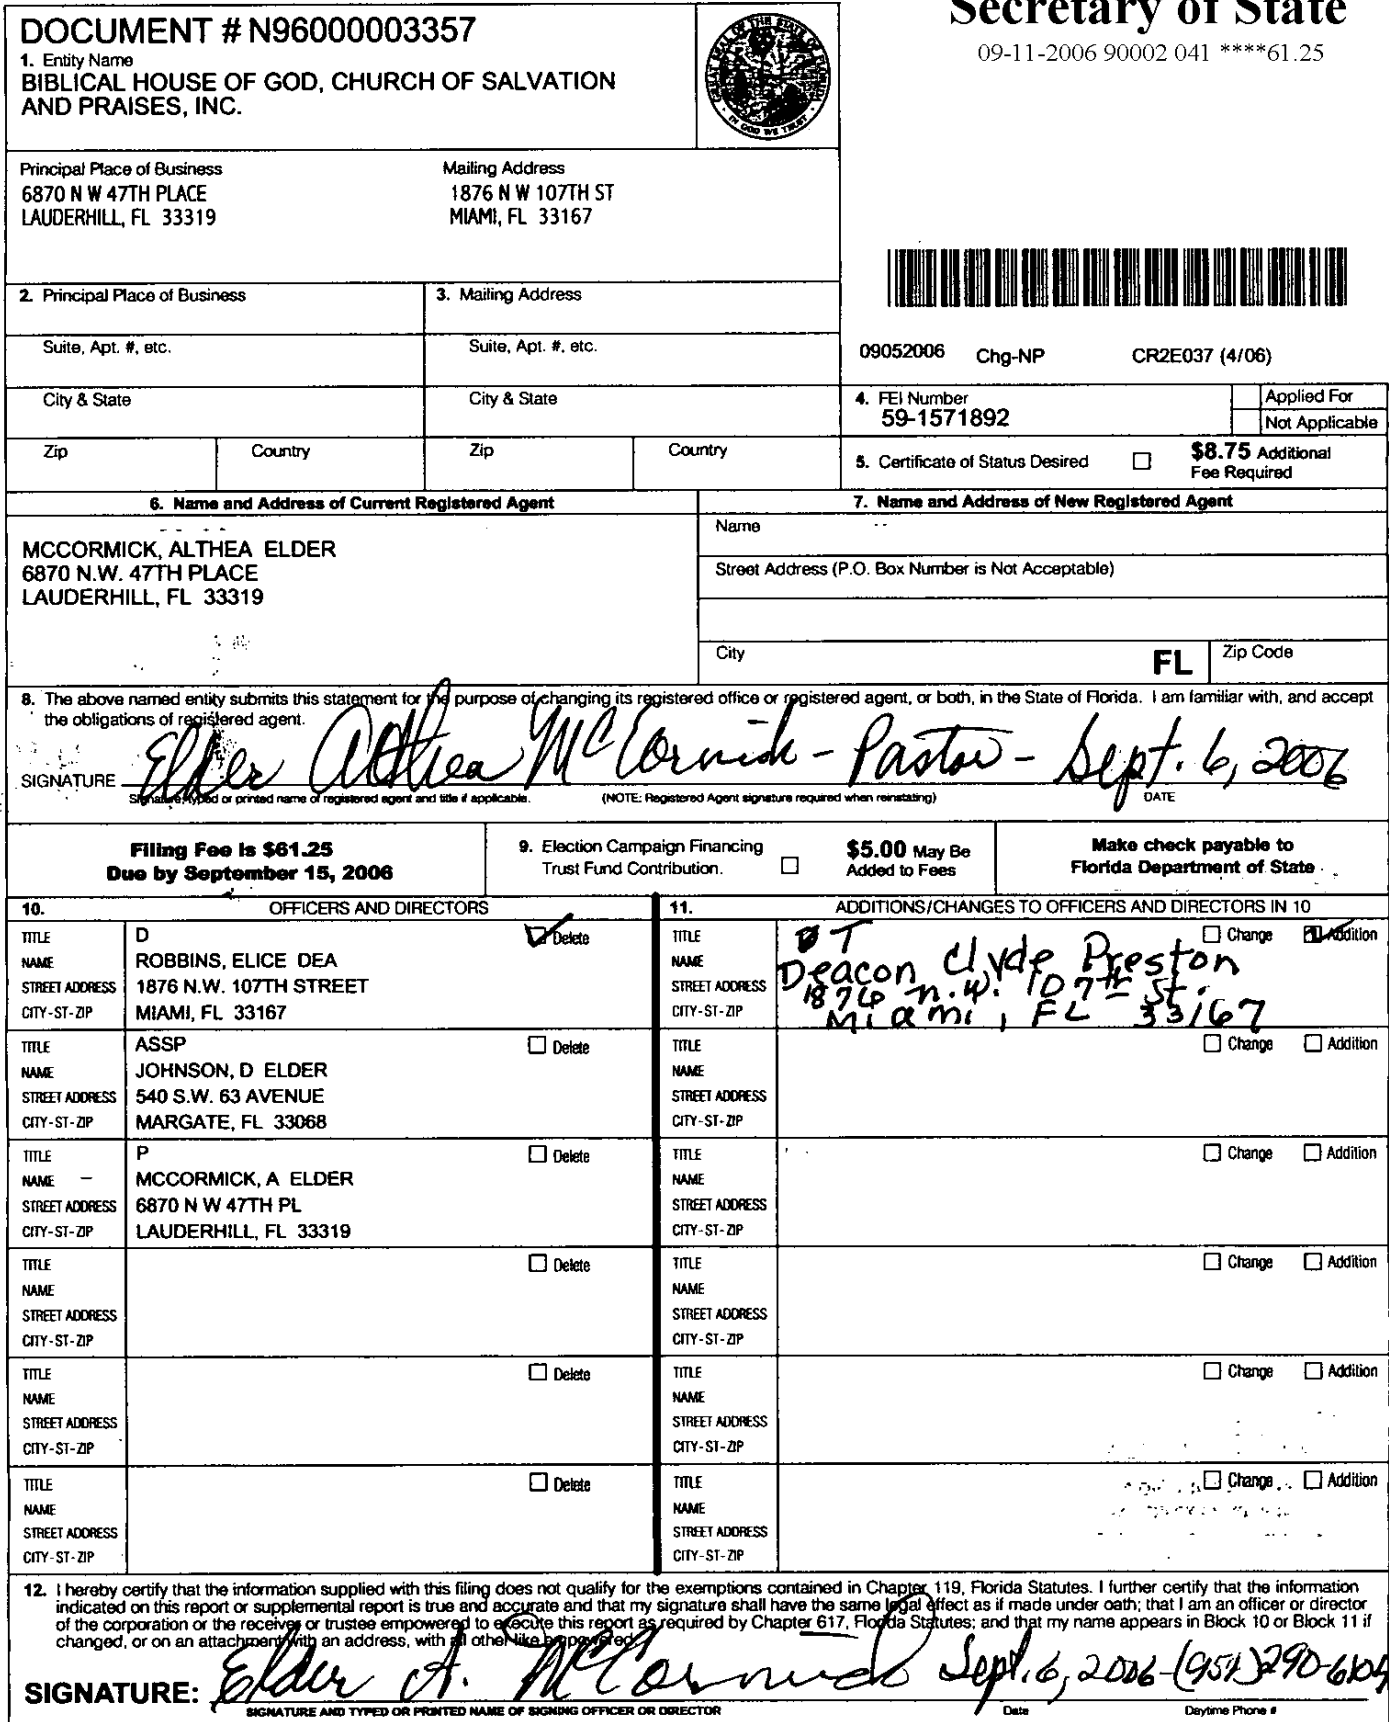 Secretary of State
09-11-2006 90002 041 ****61.25
DOCUMENT # N96000003357
1. Entity Name
BIBLICAL HOUSE OF GOD, CHURCH OF SALVATION
AND PRAISES, INC.
Principal Place of Business
6870 N W 47TH PLACE
LAUDERHILL, FL 33319
Mailing Address
1876 N W 107TH ST
MIAMI, FL 33167
2. Principal Place of Business
3. Mailing Address
Suite, Apt. #, etc.
Suite, Apt. #, etc.
09052006 Chg-NP CR2E037 (4/06)
City & State
City & State
4. FEI Number
59-1571892
Applied For
Not Applicable
Zip
Country
Zip
Country
5. Certificate of Status Desired
$8.75 Additional
Fee Required
6. Name and Address of Current Registered Agent
MCCORMICK, ALTHEA ELDER
6870 N.W. 47TH PLACE
LAUDERHILL, FL 33319
7. Name and Address of New Registered Agent
Name
Street Address (P.O. Box Number is Not Acceptable)
City
FL
Zip Code
8. The above named entity submits this statement for the purpose of changing its registered office or registered agent, or both, in the State of Florida. I am familiar with, and accept
the obligations of registered agent.
SIGNATURE Elder Althea McCormick - Pastor - Sept. 6, 2006
Signature, typed or printed name of registered agent and title if applicable. (NOTE: Registered Agent signature required when reinstating) DATE
Filing Fee is $61.25
Due by September 15, 2006
9. Election Campaign Financing
Trust Fund Contribution.
$5.00 May Be
Added to Fees
Make check payable to
Florida Department of State
10. OFFICERS AND DIRECTORS
11. ADDITIONS/CHANGES TO OFFICERS AND DIRECTORS IN 10
TITLE D Delete
NAME ROBBINS, ELICE DEA
STREET ADDRESS 1876 N.W. 107TH STREET
CITY-ST-ZIP MIAMI, FL 33167
TITLE T Change Addition
NAME Deacon Clyde Preston
STREET ADDRESS 1876 N.W. 107th St.
CITY-ST-ZIP Miami, FL 33167
TITLE ASSP Delete
NAME JOHNSON, D ELDER
STREET ADDRESS 540 S.W. 63 AVENUE
CITY-ST-ZIP MARGATE, FL 33068
TITLE Change Addition
NAME
STREET ADDRESS
CITY-ST-ZIP
TITLE P Delete
NAME MCCORMICK, A ELDER
STREET ADDRESS 6870 N W 47TH PL
CITY-ST-ZIP LAUDERHILL, FL 33319
TITLE Change Addition
NAME
STREET ADDRESS
CITY-ST-ZIP
TITLE Delete
NAME
STREET ADDRESS
CITY-ST-ZIP
TITLE Change Addition
NAME
STREET ADDRESS
CITY-ST-ZIP
TITLE Delete
NAME
STREET ADDRESS
CITY-ST-ZIP
TITLE Change Addition
NAME
STREET ADDRESS
CITY-ST-ZIP
TITLE Delete
NAME
STREET ADDRESS
CITY-ST-ZIP
TITLE Change Addition
NAME
STREET ADDRESS
CITY-ST-ZIP
12. I hereby certify that the information supplied with this filing does not qualify for the exemptions contained in Chapter 119, Florida Statutes. I further certify that the information
indicated on this report or supplemental report is true and accurate and that my signature shall have the same legal effect as if made under oath; that I am an officer or director
of the corporation or the receiver or trustee empowered to execute this report as required by Chapter 617, Florida Statutes; and that my name appears in Block 10 or Block 11 if
changed, or on an attachment with an address, with all other like empowered.
SIGNATURE: Elder A. McCormick Sept. 6, 2006 - (954) 290-6104
SIGNATURE AND TYPED OR PRINTED NAME OF SIGNING OFFICER OR DIRECTOR Date Daytime Phone #